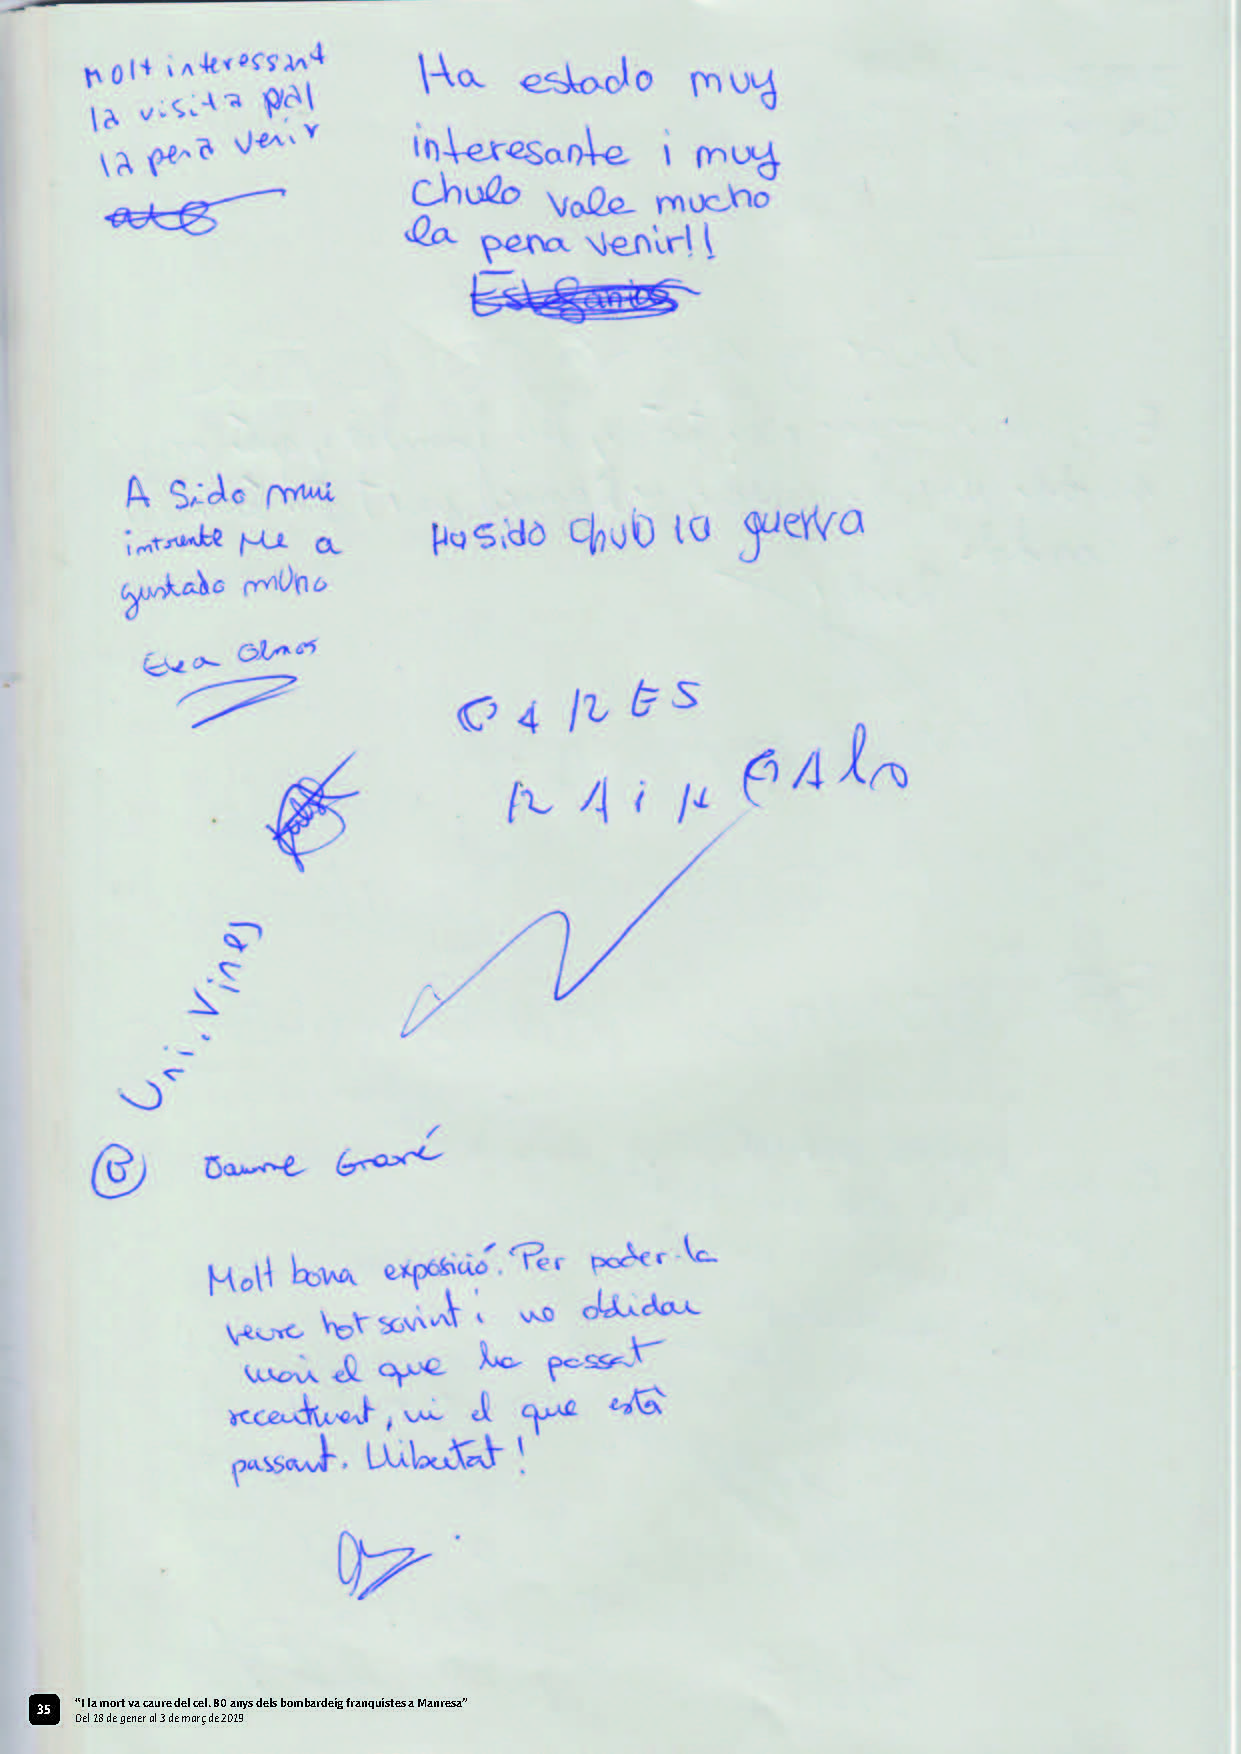 Molt interessant
la visita val
la pena venir
Ha estado muy
interesante i muy
chulo vale mucho
la pena venir!!
Estefania
A Sido mui
Me a
gustado
Olmos
Ha sido chulo la guerra
Uni. Vines
Jaume Grané
Molt bona exposició. Per poder-la
veure tot sovint i no oblidar
mai el que ha passat
recentment, ni el que està
passant. Llibertat!
35
“I la mort va caure del cel. 80 anys dels bombardeig franquistes a Manresa”
Del 18 de gener al 3 de març de 2019